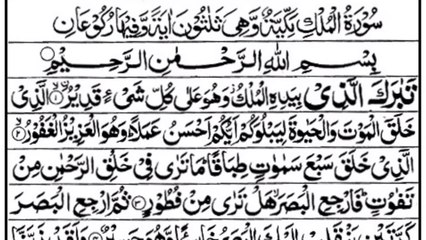 سُوْرَةُ الْمُلْكِ مَكِّيَّةٌ وَّهِىَ ثَلٰثُوْنَ اٰيَةً وَّفِيْهَا رُكُوْعَانِ
بِسْمِ اللّٰهِ الرَّحْمٰنِ الرَّحِيْمِ
تَبٰرَكَ الَّذِىْ بِيَدِهِ الْمُلْكُ وَهُوَ عَلٰى كُلِّ شَىْءٍ قَدِيْرُ ۙ‏﴿۱﴾ الَّذِىْ
خَلَقَ الْمَوْتَ وَالْحَيٰوةَ لِيَبْلُوَكُمْ اَيُّكُمْ اَحْسَنُ عَمَلًا ؕ وَهُوَ الْعَزِيْزُ الْغَفُوْرُ ۙ﴿۲﴾
الَّذِىْ خَلَقَ سَبْعَ سَمٰوٰتٍ طِبَاقًا ؕ مَا تَرٰى فِىْ خَلْقِ الرَّحْمٰنِ مِنْ
تَفٰوُتٍ ؕ فَارْجِعِ الْبَصَرَ ۙ هَلْ تَرٰى مِنْ فُطُوْرٍ ﴿۳﴾ ثُمَّ ارْجِعِ الْبَصَرَ